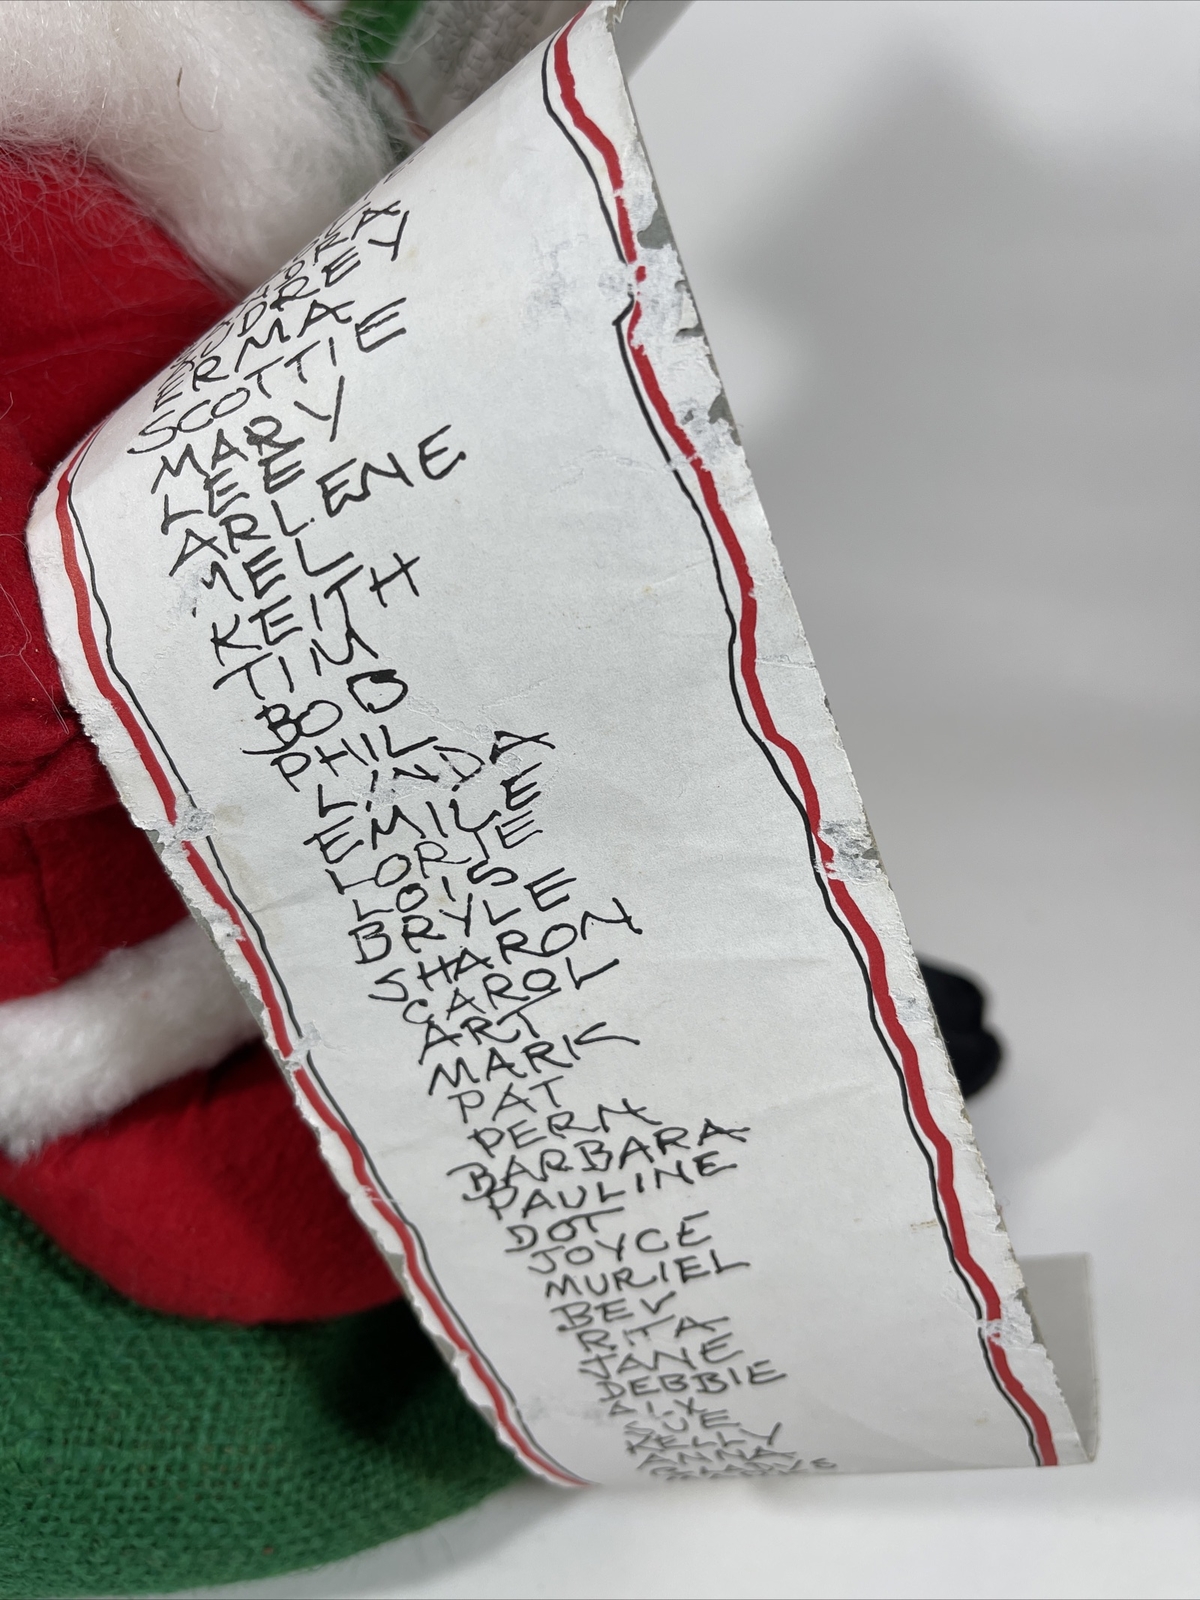 ERMA
SCOTTIE
MARY
LEE
ARLENE
MEL
KEITH
TIM
BOB
PHIL
LINDA
EMILE
LORIE
LOIS
BRYLE
SHARON
CAROL
ART
MARK
PAT
PERN
BARBARA
PAULINE
DOT
JOYCE
MURIEL
BEV
RITA
JANE
DEBBIE
SUE
KELLY
ANNA